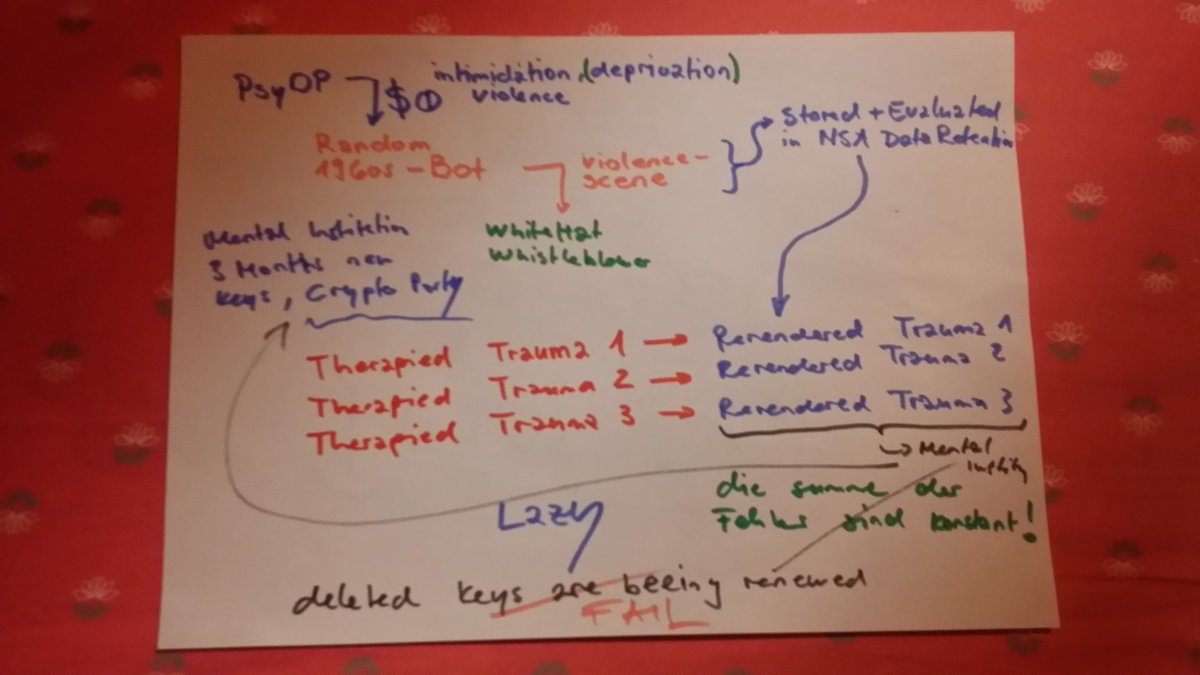 PsyOP
$
intimidation, (deprivation)
violence
Random
1960s - Bot
violence-
scene
Stored + Evaluated
in NSA Data Retention
WhiteHat
Whistleblower
Mental Institution
3 Months new
keys, Crypto Party
Therapied Trauma 1 → Rerendered Trauma 1
Therapied Trauma 2 → Rerendered Trauma 2
Therapied Trauma 3 → Rerendered Trauma 3
↳ Mental
die summe der
Fehler sind konstant!
Lazy
deleted keys are beeing renewed
FAIL